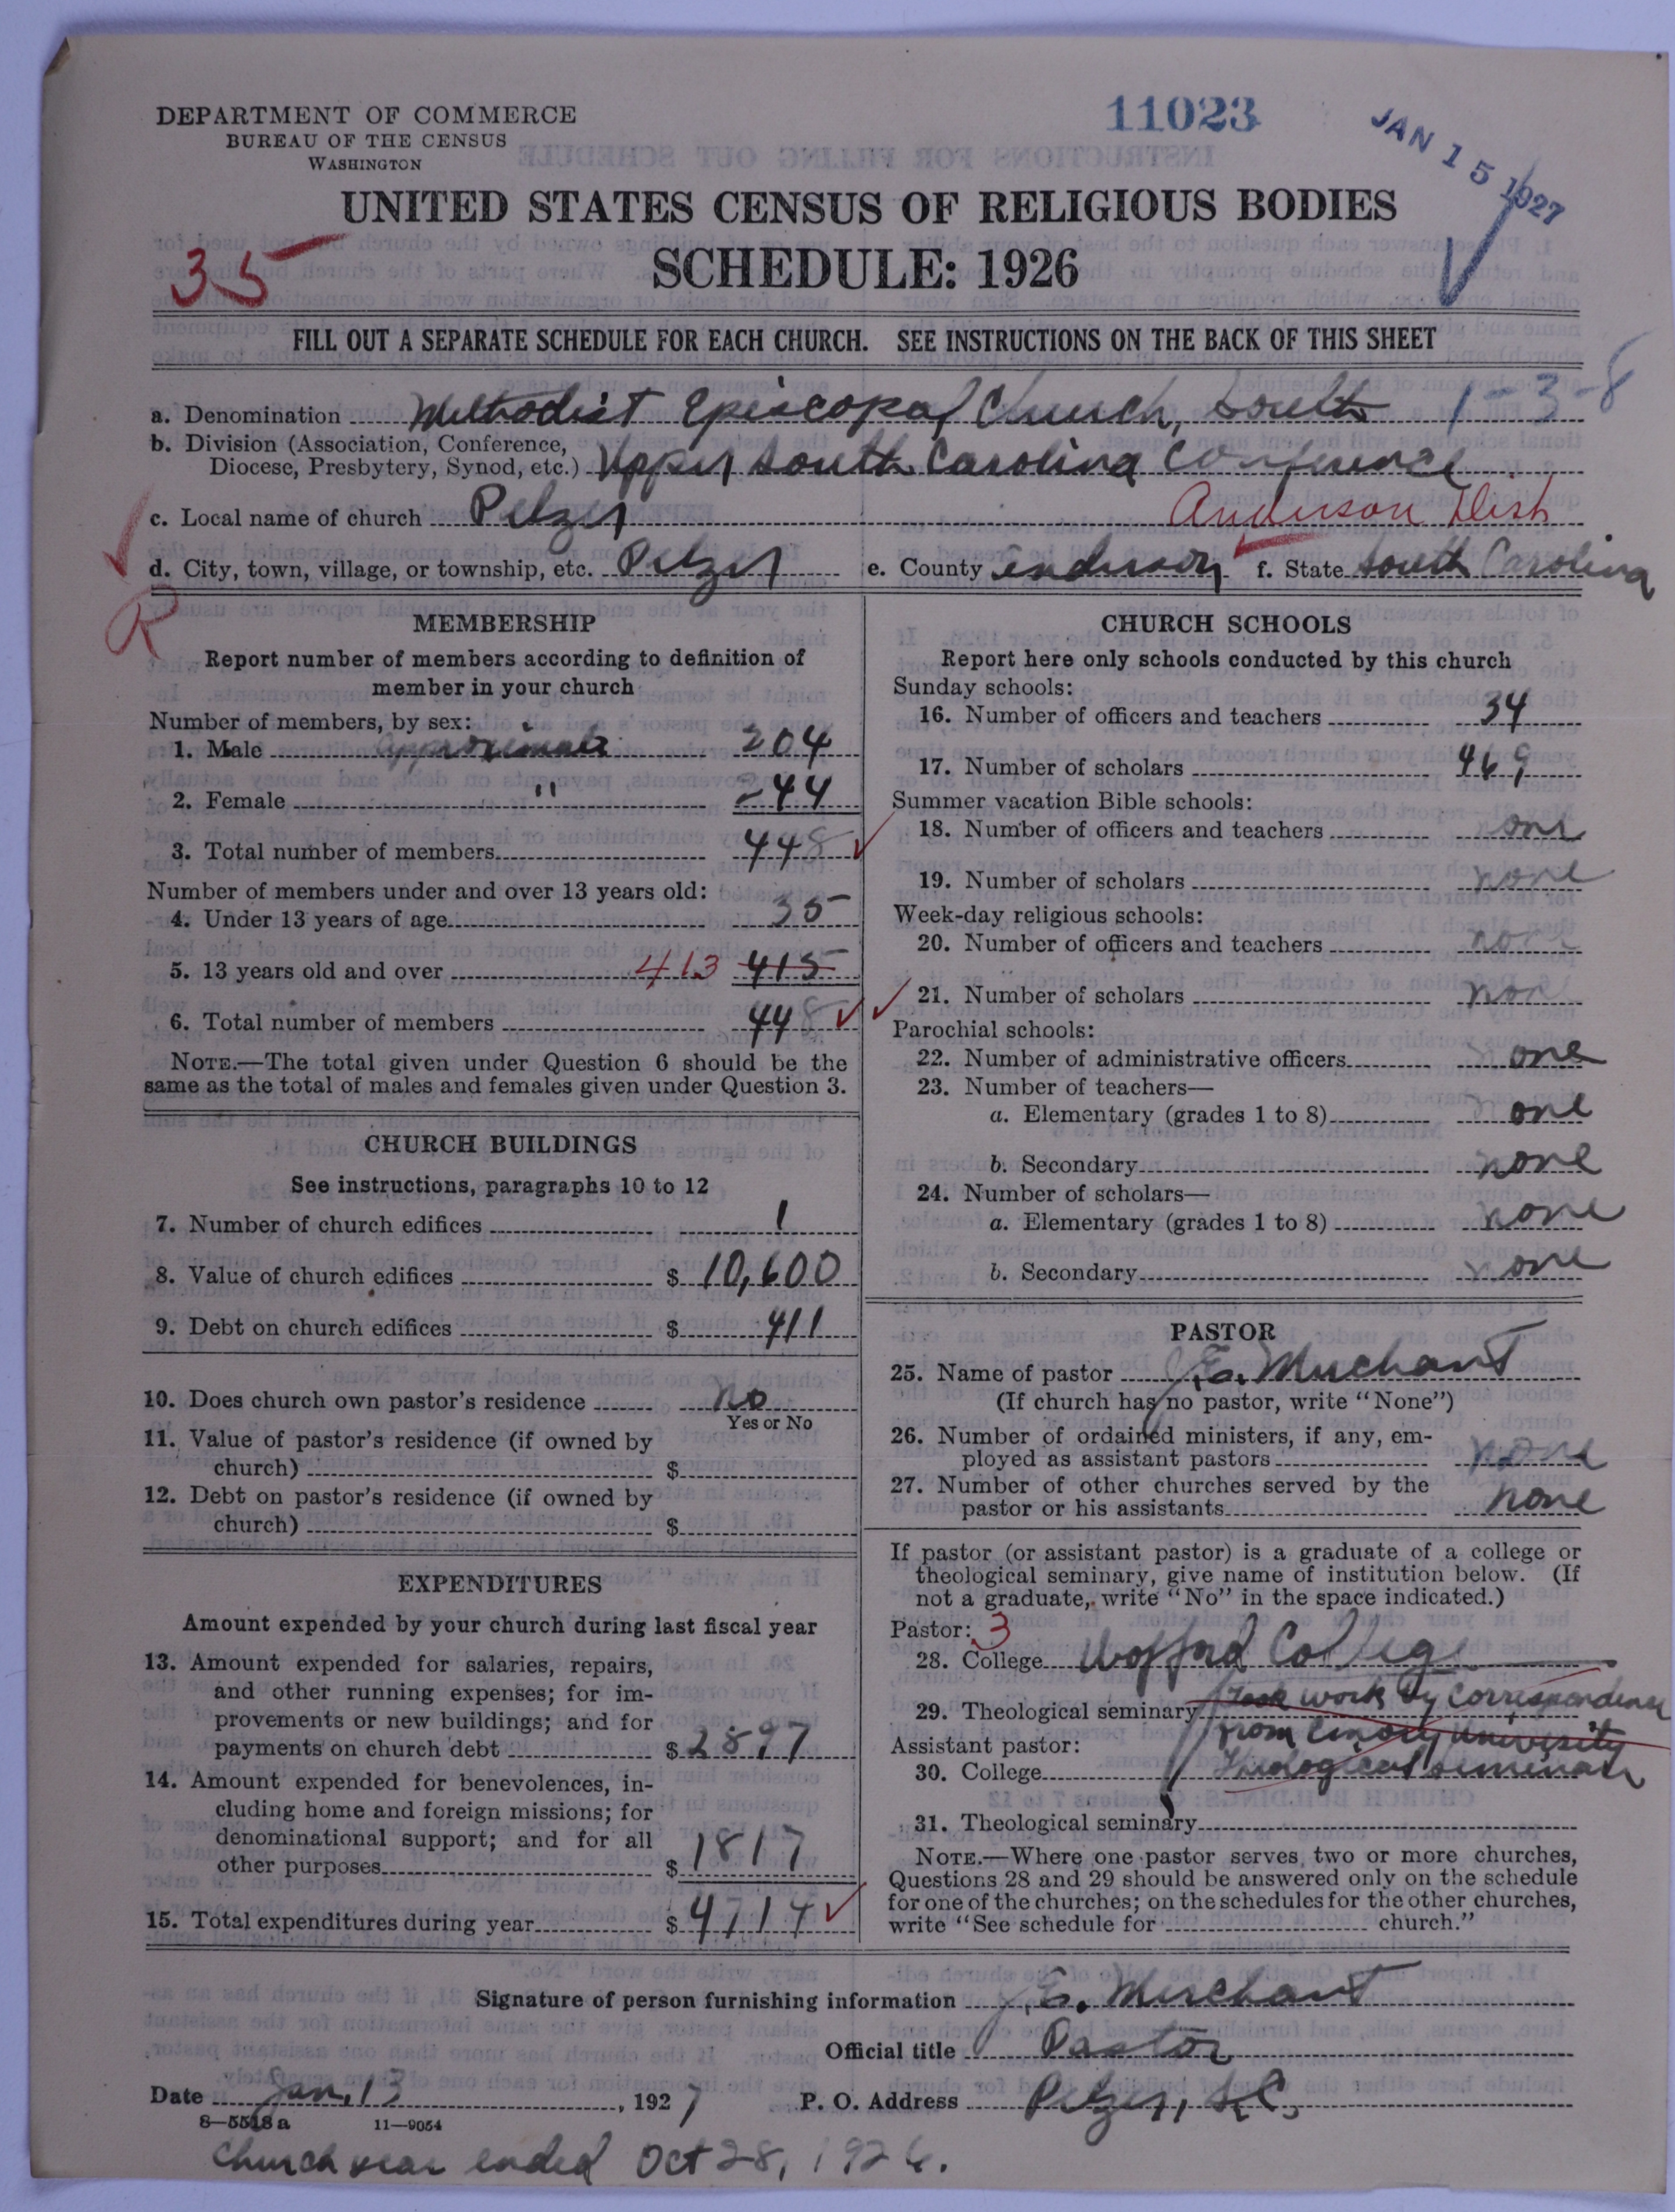 DEPARTMENT OF COMMERCE
BUREAU OF THE CENSUS
WASHINGTON
11023
JAN 15 1927
UNITED STATES CENSUS OF RELIGIOUS BODIES
SCHEDULE: 1926
35
FILL OUT A SEPARATE SCHEDULE FOR EACH CHURCH. SEE INSTRUCTIONS ON THE BACK OF THIS SHEET
a. Denomination Methodist Episcopal Church, South 1-3-8
b. Division (Association, Conference,
Diocese, Presbytery, Synod, etc.) Upper South Carolina Conference
c. Local name of church Pelzer Anderson Dist
d. City, town, village, or township, etc. Pelzer e. County Anderson f. State South Carolina
R
MEMBERSHIP
Report number of members according to definition of
member in your church
Number of members, by sex:
1. Male approximate 204
2. Female " 244
3. Total number of members 448
Number of members under and over 13 years old:
4. Under 13 years of age 35
5. 13 years old and over 413 415
6. Total number of members 448
NOTE.—The total given under Question 6 should be the
same as the total of males and females given under Question 3.
CHURCH BUILDINGS
See instructions, paragraphs 10 to 12
7. Number of church edifices 1
8. Value of church edifices $ 10,600
9. Debt on church edifices $ 411
10. Does church own pastor's residence no
Yes or No
11. Value of pastor's residence (if owned by
church) $
12. Debt on pastor's residence (if owned by
church) $
EXPENDITURES
Amount expended by your church during last fiscal year
13. Amount expended for salaries, repairs,
and other running expenses; for im-
provements or new buildings; and for
payments on church debt $ 2897
14. Amount expended for benevolences, in-
cluding home and foreign missions; for
denominational support; and for all
other purposes $ 1817
15. Total expenditures during year $ 4714
CHURCH SCHOOLS
Report here only schools conducted by this church
Sunday schools:
16. Number of officers and teachers 34
17. Number of scholars 469
Summer vacation Bible schools:
18. Number of officers and teachers none
19. Number of scholars none
Week-day religious schools:
20. Number of officers and teachers none
21. Number of scholars none
Parochial schools:
22. Number of administrative officers none
23. Number of teachers—
a. Elementary (grades 1 to 8) none
b. Secondary none
24. Number of scholars—
a. Elementary (grades 1 to 8) none
b. Secondary none
PASTOR
25. Name of pastor J.E. Merchant
(If church has no pastor, write "None")
26. Number of ordained ministers, if any, em-
ployed as assistant pastors none
27. Number of other churches served by the
pastor or his assistants none
If pastor (or assistant pastor) is a graduate of a college or
theological seminary, give name of institution below. (If
not a graduate, write "No" in the space indicated.)
Pastor: 3
28. College Wofford College
29. Theological seminary Took work by Correspondence
from Emory University
Assistant pastor:
30. College Theological Seminary
31. Theological seminary
NOTE.—Where one pastor serves two or more churches,
Questions 28 and 29 should be answered only on the schedule
for one of the churches; on the schedules for the other churches,
write "See schedule for church."
Signature of person furnishing information J.E. Merchant
Official title Pastor
Date Jan. 13, 1927 P. O. Address Pelzer, S.C.
8—5518 a 11—9054
Church year ended Oct 28, 1926.